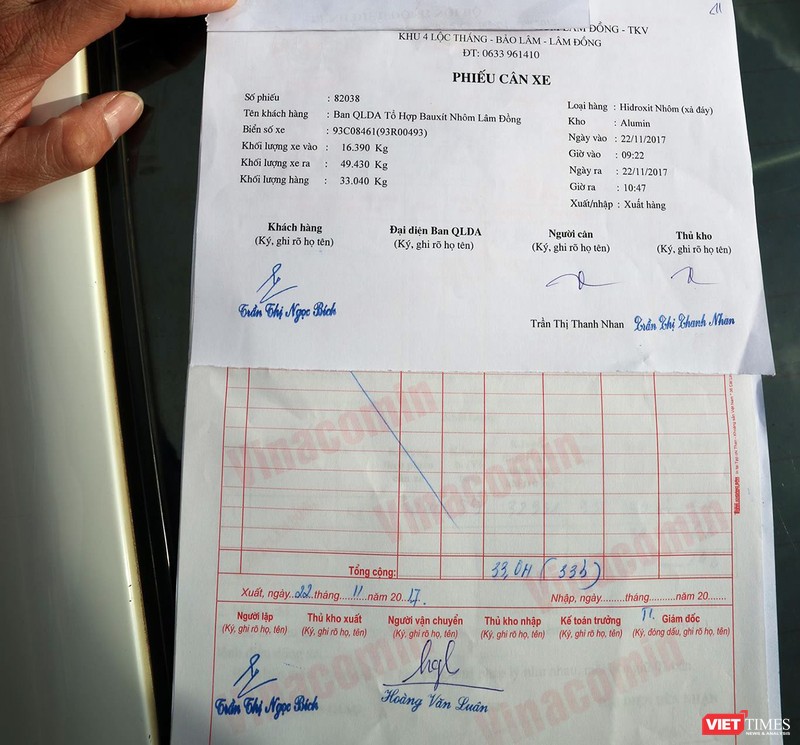 LÂM ĐỒNG - TKV
KHU 4 LỘC THẮNG - BẢO LÂM - LÂM ĐỒNG
ĐT: 0633 961410
PHIẾU CÂN XE
Số phiếu : 82038
Tên khách hàng : Ban QLDA Tổ Hợp Bauxít Nhôm Lâm Đồng
Biển số xe : 93C08461(93R00493)
Khối lượng xe vào : 16.390 Kg
Khối lượng xe ra : 49.430 Kg
Khối lượng hàng : 33.040 Kg
Loại hàng : Hidroxit Nhôm (xả đáy)
Kho : Alumin
Ngày vào : 22/11/2017
Giờ vào : 09:22
Ngày ra : 22/11/2017
Giờ ra : 10:47
Xuất/nhập : Xuất hàng
Khách hàng Đại diện Ban QLDA Người cân Thủ kho
(Ký, ghi rõ họ tên) (Ký, ghi rõ họ tên) (Ký, ghi rõ họ tên) (Ký, ghi rõ họ tên)
Trần Thị Ngọc Bích Trần Thị Thanh Nhan Trần Thị Thanh Nhan
Vinacomin
Vinacomin
Vinacomin
Tổng cộng: 33,04
Xuất, ngày..22..tháng...11...năm 20.17. Nhập, ngày........tháng.........năm 20.......
Người lập Thủ kho xuất Người vận chuyển Thủ kho nhập Kế toán trưởng TL. Giám đốc
(Ký, ghi rõ họ, tên) (Ký, ghi rõ họ, tên) (Ký, ghi rõ họ, tên) (Ký, ghi rõ họ, tên) (Ký, ghi rõ họ, tên) (Ký, đóng dấu, ghi rõ họ, tên)
Vinacomin
Vinacomin
Trần Thị Ngọc Bích Hoàng Văn Luân
VIETTIMES
NEWS & ANALYSIS